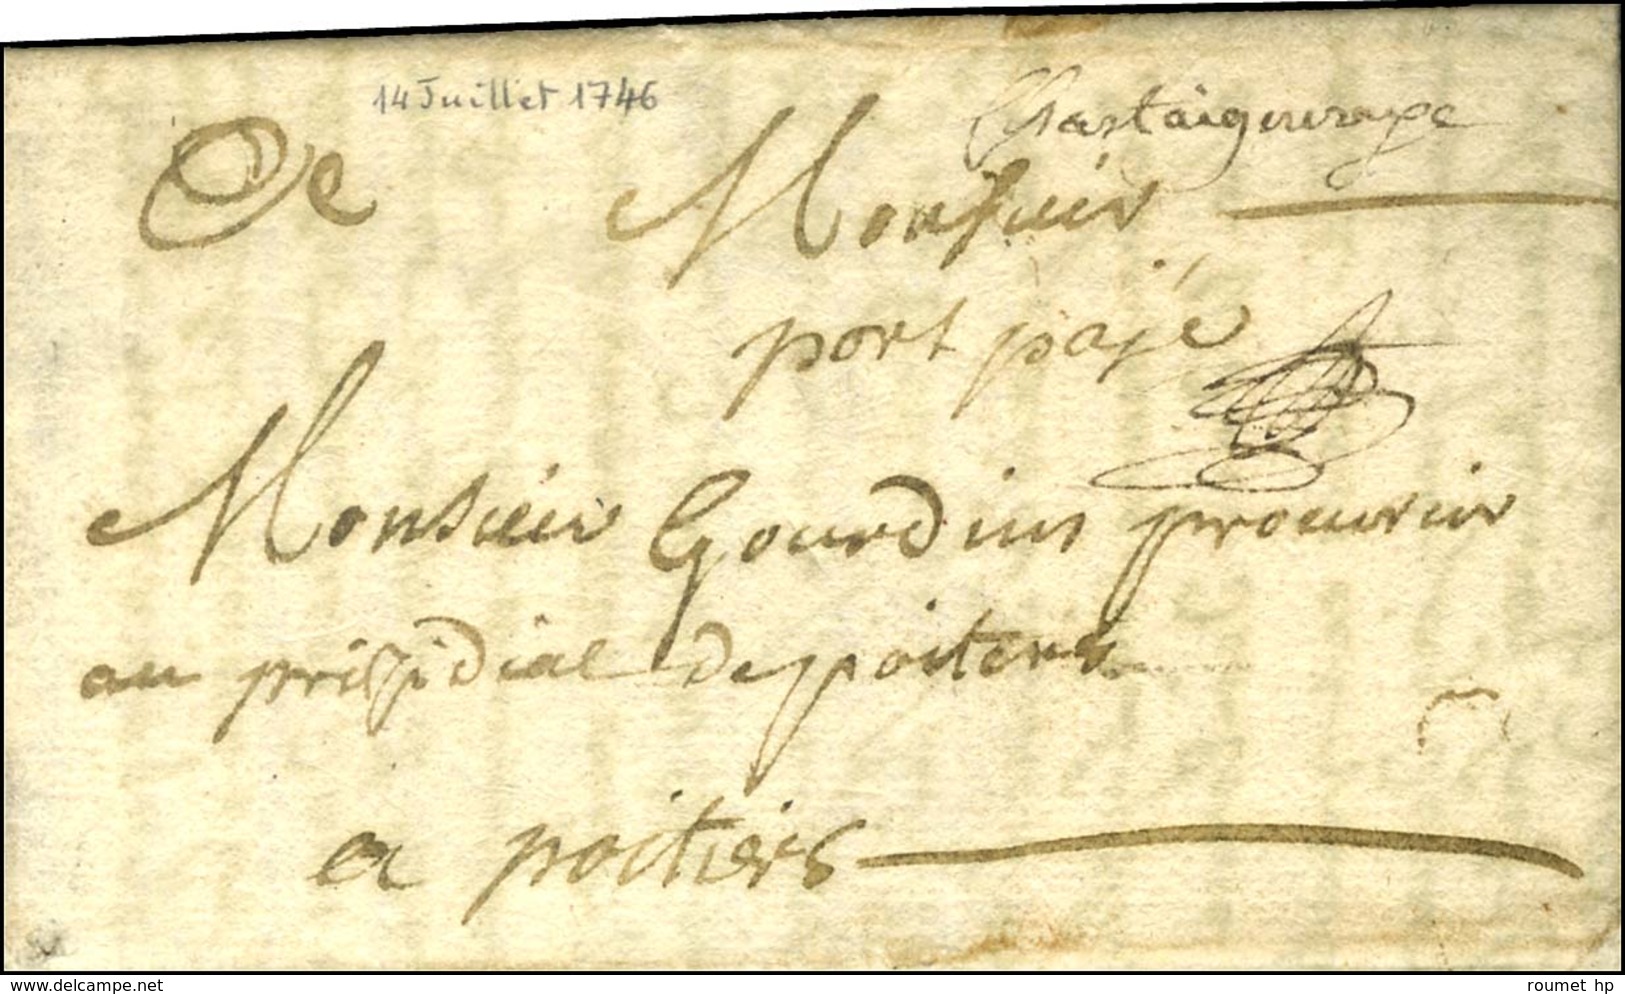 14 Juillet 1746
Chastaigneraye
A Monsieur
port payé
Monsieur Gourdin procureur
au prizidial de poitiers
a poitiers
www.delcampe.net
roumet hp